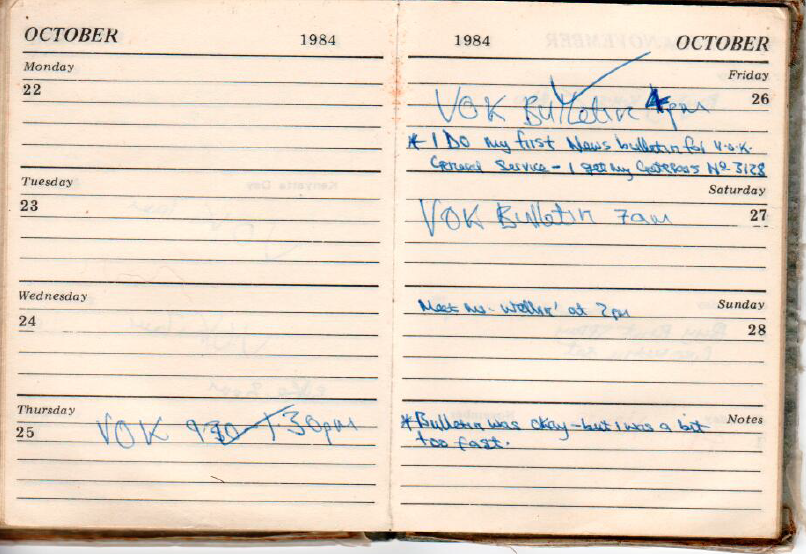 OCTOBER 1984
Monday
22
Tuesday
23
Wednesday
24
Thursday
25
VOK 930-1.30pm
1984 OCTOBER
Friday
26
VOK Bulletin 4pm
* I Do my first News bulletin for V.O.K.
General Service - I get my Gatepass No 3128
Saturday
27
VOK Bulletin 7am
Sunday
28
Meet Mr. at 2pm
Notes
* Bulletin was okay - but I was a bit
too fast.